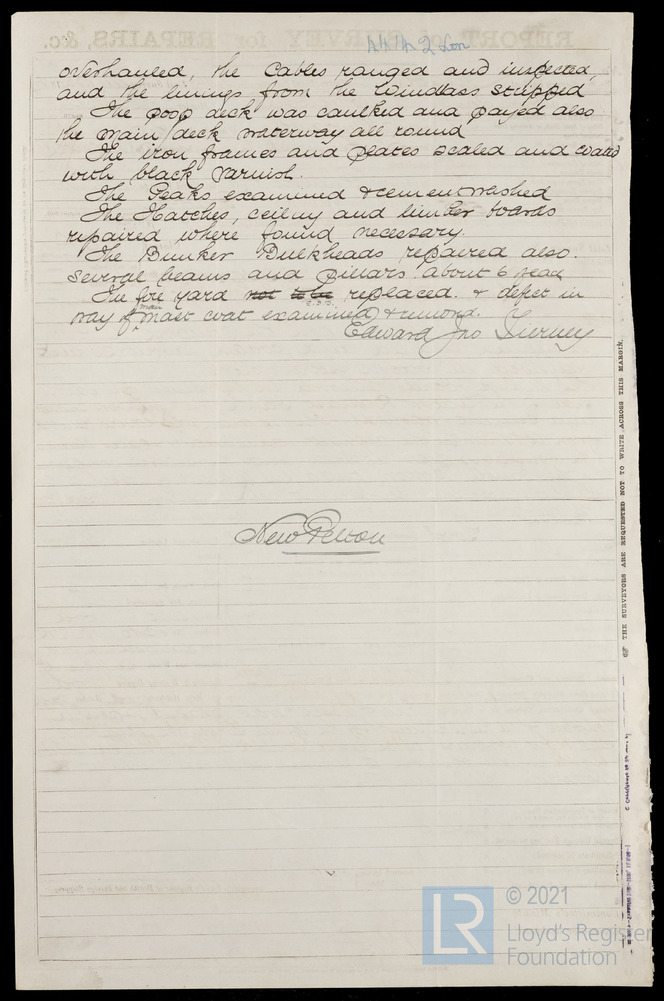 4414 2 Lon
overhauled, the Cables ranged and inspected,
and the linings from the Windlass stripped
The poop deck was caulked and payed also
the main deck waterway all round
The iron frames and plates scaled and coated
with black varnish.
The Peaks examined & cementwashed
The Hatches, ceiling and limber boards
repaired where found necessary.
The Bunker Bulkheads repaired also.
several beams and pillars about 6 head
The fore yard not to be replaced. & defect in
way of main mast coat examined &
Edward Jno Gurney
New Pelton
THE SURVEYORS ARE REQUESTED NOT TO WRITE ACROSS THIS MARGIN.
© 2021
Lloyd's Register
Foundation
LR